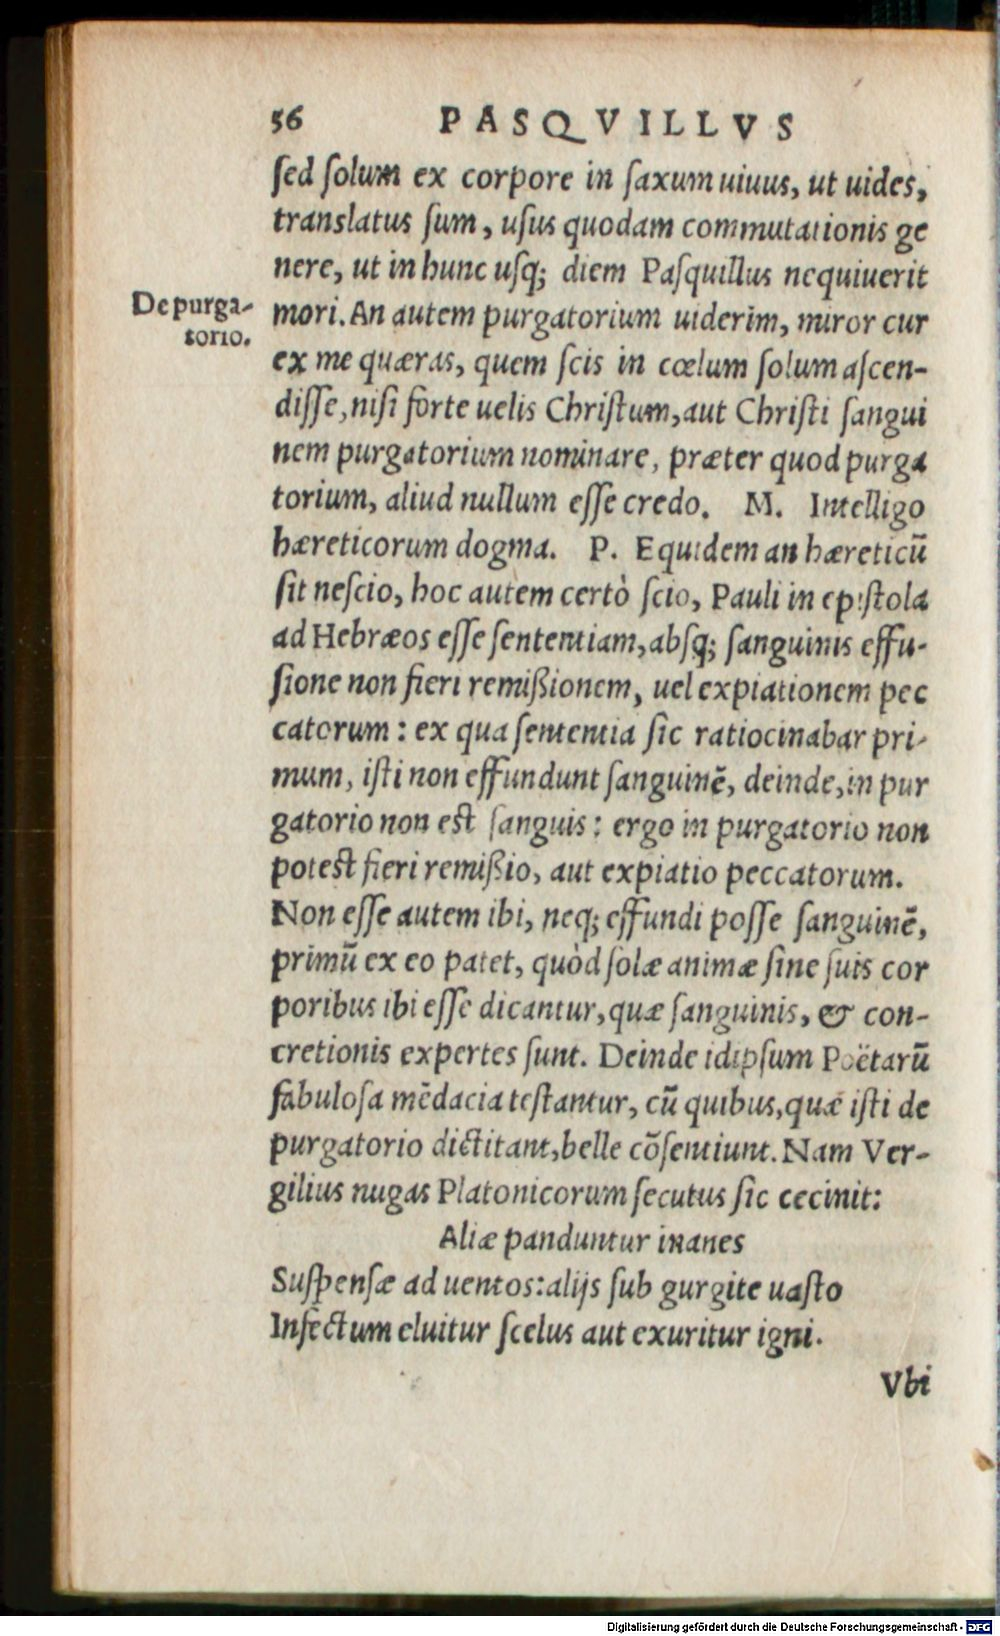 56 PASQVILLVS
ſed ſolum ex corpore in ſaxum uiuus, ut uides,
translatus ſum, uſus quodam commutationis ge
nere, ut in hunc uſq; diem Paſquillus nequiuerit
De purga-
torio.
mori. An autem purgatorium uiderim, miror cur
ex me quæras, quem ſcis in cœlum ſolum aſcen-
diſſe, niſi forte uelis Chriſtum, aut Chriſti ſangui
nem purgatorium nominare, præter quod purga
torium, aliud nullum eſſe credo. M. Intelligo
hæreticorum dogma. P. Equidem an hæreticũ
ſit neſcio, hoc autem certò ſcio, Pauli in epiſtola
ad Hebræos eſſe ſententiam, abſq; ſanguinis effu-
ſione non fieri remißionem, uel expiationem pec
catorum: ex qua ſententia ſic ratiocinabar pri-
mum, iſti non effundunt ſanguinẽ, deinde, in pur
gatorio non eſt ſanguis: ergo in purgatorio non
poteſt fieri remißio, aut expiatio peccatorum.
Non eſſe autem ibi, neq; effundi poſſe ſanguinẽ,
primũ ex eo patet, quòd ſolæ animæ ſine ſuis cor
poribus ibi eſſe dicantur, quæ ſanguinis, & con-
cretionis expertes ſunt. Deinde idipſum Poëtarũ
fabuloſa mẽdacia teſtantur, cũ quibus, quæ iſti de
purgatorio dictitant, belle cõſentiunt. Nam Ver-
gilius nugas Platonicorum ſecutus ſic cecinit:
Aliæ panduntur inanes
Suſpenſæ ad uentos: alijs ſub gurgite uaſto
Infectum eluitur ſcelus aut exuritur igni.
Vbi
Digitalisierung gefördert durch die Deutsche Forschungsgemeinschaft - DFG